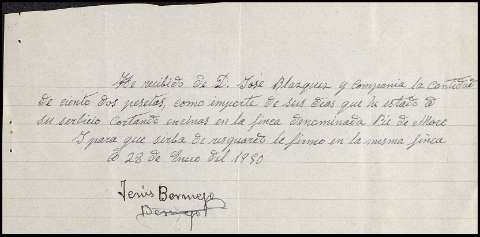 He recibido de D. José Blazquez y compania la cantidad
de ciento dos pesetas, como importe de sus dias que ha estado a
su serbicio cortando encinas en la finca denominada Pie de More
I para que sirba de resguardo le firmo en la misma finca
a 28 de Enero del 1940
Jesús Bermejo
Bermejo